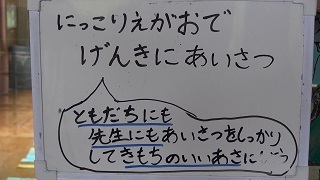 にっこりえがおで
げんきにあいさつ
ともだちにも
先生にもあいさつをしっかり
してきもちのいいあさに